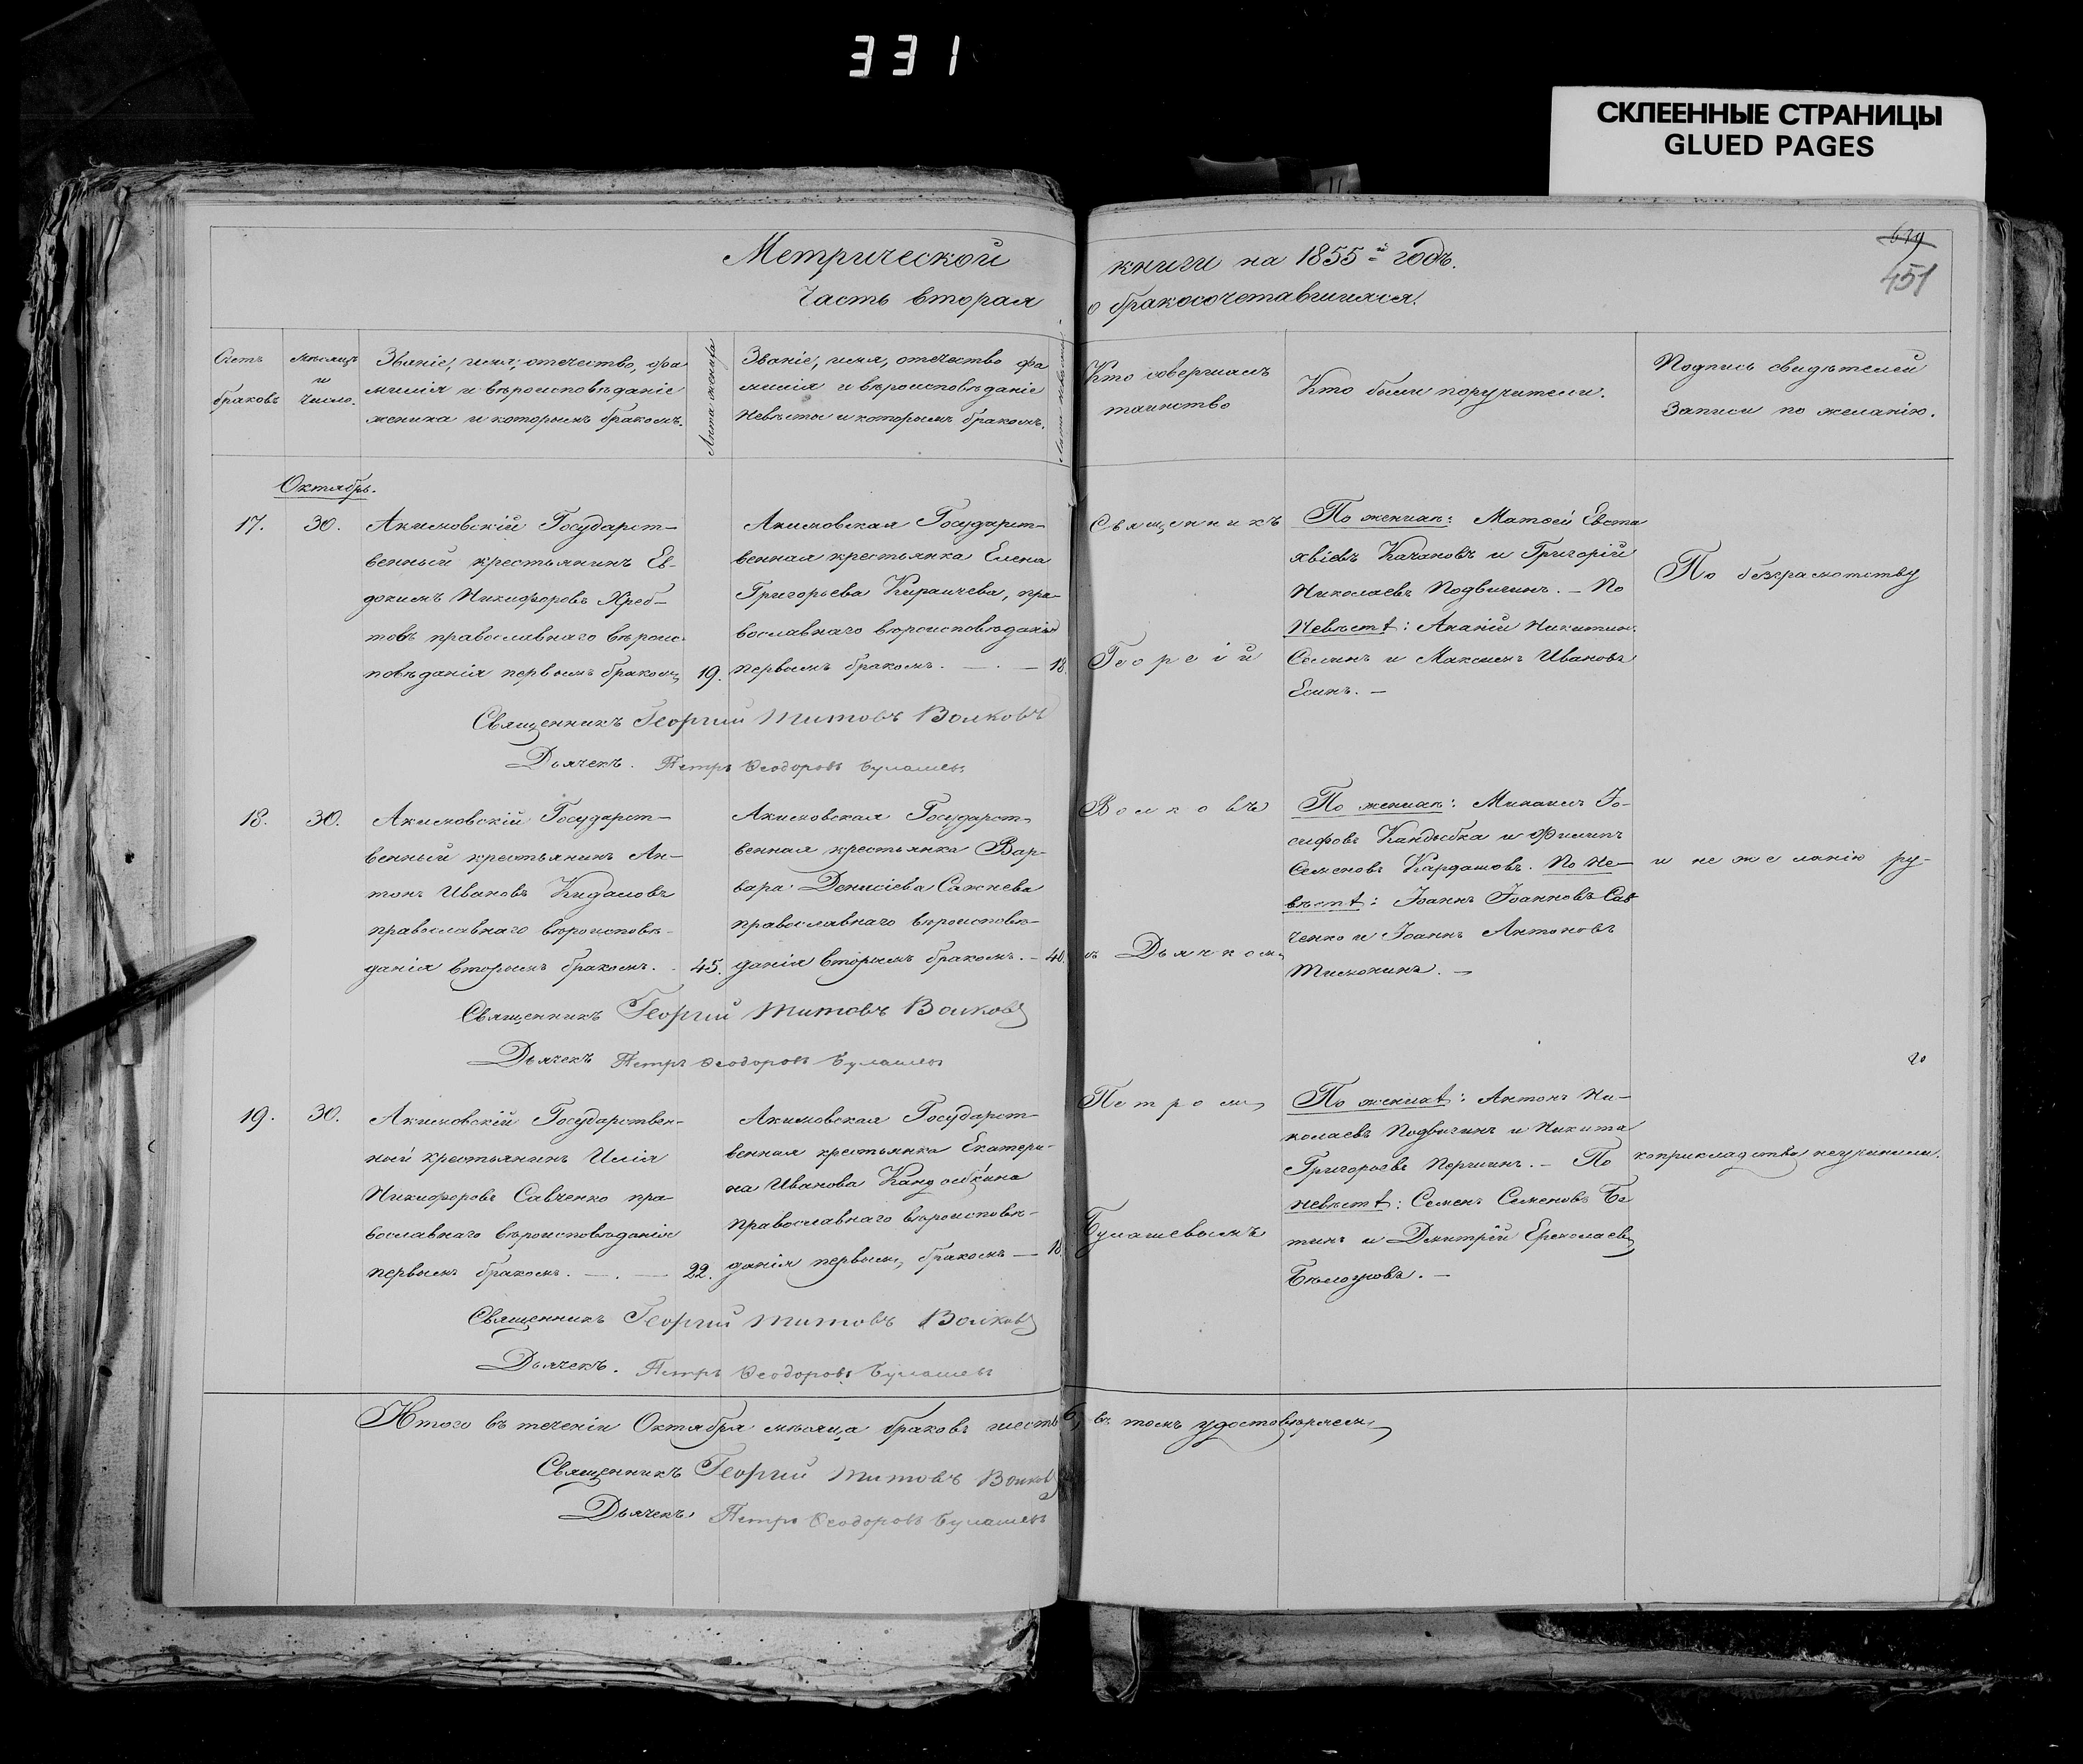 331
СКЛЕЕННЫЕ СТРАНИЦЫ
GLUED PAGES
451
Метрической книги на 1855й годъ.
Часть вторая о бракосочетавшихся.
Счетъ браковъ
Мѣсяцъ и число.
Званіе, имя, отечество, фа
милія и вѣроисповѣданіе
жениха и которымъ бракомъ.
Лѣта жениха
Званіе, имя, отечество фа
милія и вѣроисповѣданіе
Невѣсты и которымъ бракомъ.
Кто совершалъ
таинство
Кто были поручители.
Подпись свидѣтелей
Записи по желанію.
Октябрь.
17. 30.
Акимовскій Государст-
венный крестьянинъ Ев-
докимъ Никифоровъ Хреб-
товъ православнаго вѣроис-
повѣданія первымъ бракомъ 19.
Акимовская Государст-
венная крестьянка Елена
Григорьева Кирпичева, пра-
вославнаго вѣроисповѣданія
первымъ бракомъ. — 18.
Священникъ
Георгій
По женихѣ: Матѳей Евста
хвіевъ Качановъ и Григорій
Николаевъ Подвигинъ. — По
Невѣстѣ: Ананій Никитин.
Селинъ и Максимъ Ивановъ
Есинъ. —
По безграмотству
Священникъ Георгій Титовъ Волковъ
Дьячекъ. Петръ Ѳеодоровъ Булашев
18. 30.
Акимовскій Государст-
венный крестьянинъ Ан-
тонъ Ивановъ Кидаловъ
православнаго вѣроисповѣ-
данія вторымъ бракомъ. 45.
Акимовская Государст-
венная крестьянка Вар-
вара Денисіева Сажнева
православнаго вѣроисповѣ-
данія вторымъ бракомъ. — 40.
Волковъ
съ Дьячком
По женихѣ: Михаилъ Іо-
сифовъ Кандыбка и Филипъ
Семеновъ Кардашовъ. По Не-
вѣстѣ: Іоаннъ Іоанновъ Сав
ченко и Іоаннъ Антоновъ
Тимонинъ. —
и не желанію ру-
Священникъ Георгій Титовъ Волковъ
Дьячекъ Петръ Ѳеодоровъ Булашев
19. 30.
Акимовскій Государствен-
ный крестьянинъ Илія
Никифоровъ Савченко пра-
вославнаго вѣроисповѣданія
первымъ бракомъ. — . — 22.
Акимовская Государст-
венная крестьянка Екатери-
на Иванова Кандыбкина
православнаго вѣроисповѣ-
данія первымъ бракомъ — 18
Петромъ
Булашевымъ
По женихѣ: Антонъ Ни-
колаевъ Подвигинъ и Никита
Григорьевъ Першинъ. — По
невѣстѣ: Семенъ Семеновъ Бе
тинъ и Дмитрій Ермолаевъ
Бѣлоусовъ. —
коприкладства неучинили.
Священникъ Георгій Титовъ Волковъ
Дьячекъ. Петръ Ѳеодоровъ Булашев
Итого въ теченіи Октября мѣсяца браковъ шесть 6, въ томъ удостовѣряемъ
Священникъ Георгій Титовъ Волковъ
Дьячекъ Петръ Ѳеодоровъ Булашевъ